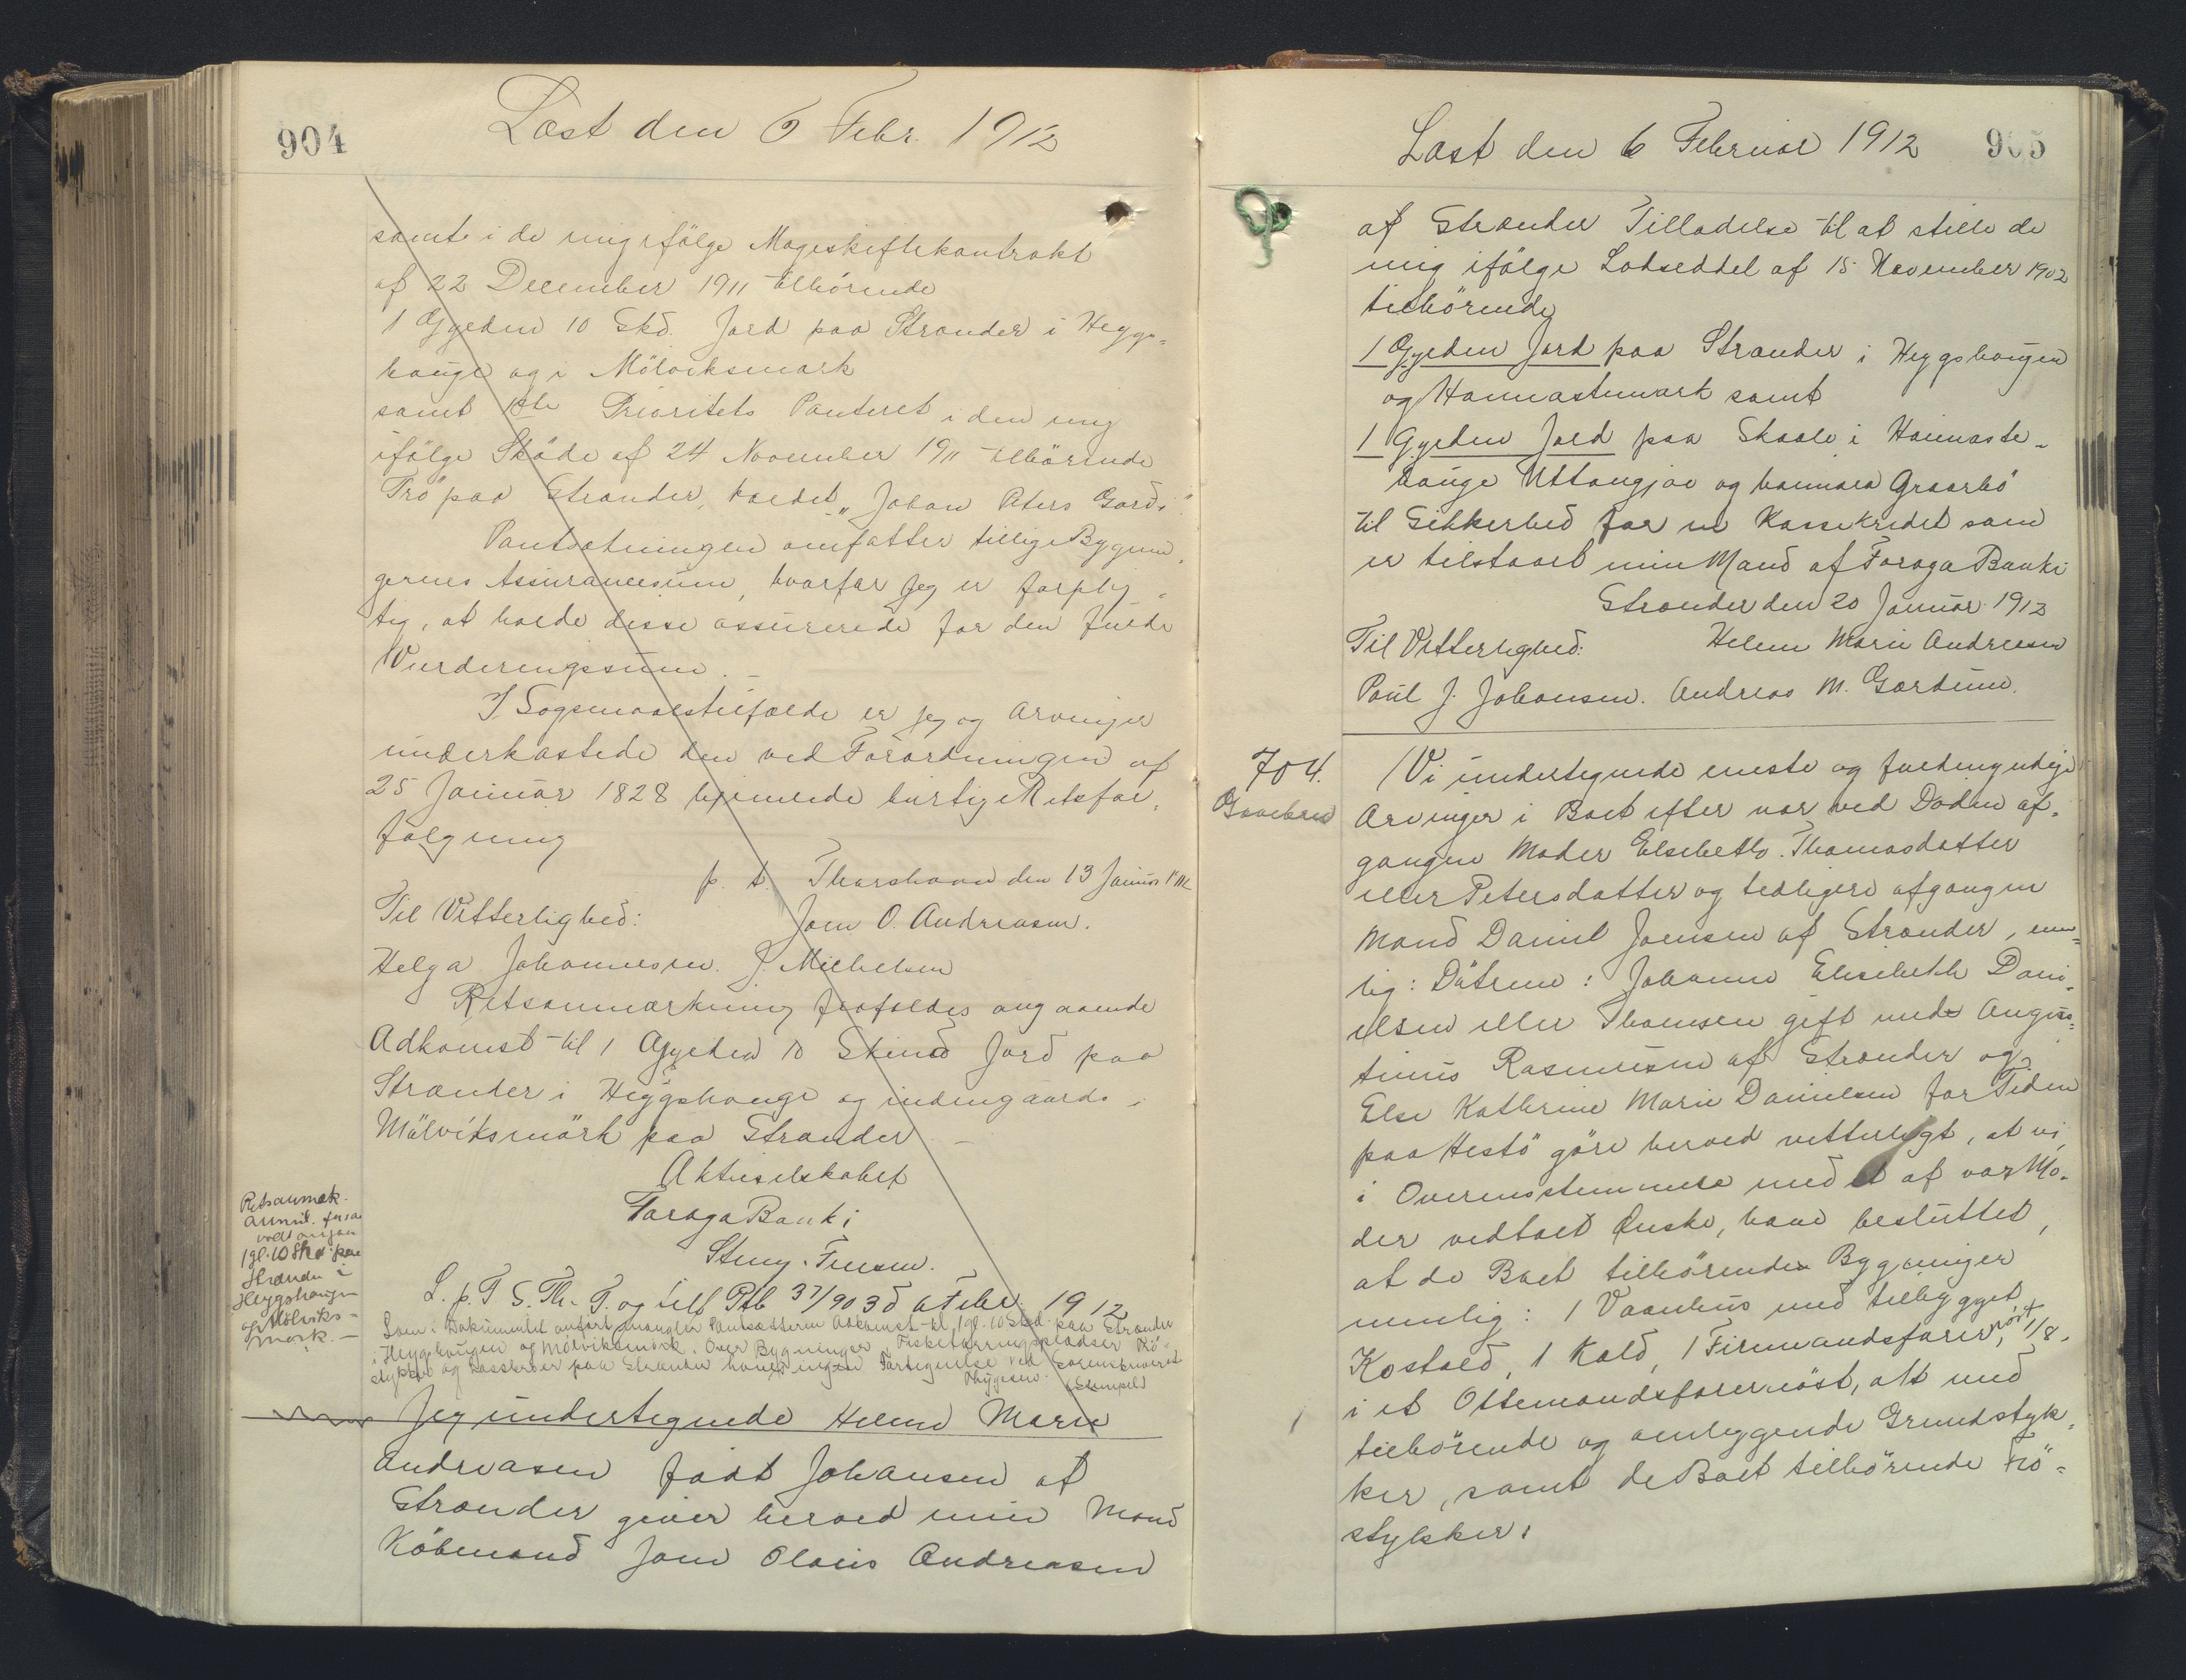 904
Læst den 6 Febr. 1912
samt i de mig ifölge Mageskiftekontrakt
af 22 December 1911 tilhörende
1 Gylden 10 Skd. Jord paa Strænder i Heygs-
hauge og i Mölviksmørk
samt 1ste Prioritets Panteret i den mig
ifölge Sköde af 24 November 1911 tilhörende
Trö paa Strænder, kaldet "Johan Peters Gardi".
Pantsætningen omfatter tillige Bygnin-
gernes Assurancesum, hvorfor jeg er forplig-
tig, at holde disse assurerede for den fulde
Vurderingssum.
I Sogsmaalstilfælde er jeg og Arvinger
underkastede den ved Forordningen af
25 Januar 1828 hjemlede hurtige Retsfor-
fölgning
p. t. Thorshavn den 13 Januar 1912
Til Vitterlighed: Joen O. Andreasen.
Helga Johannesen. J. Michelsen
Retsanmærkning frafaldes angaaende
Adkomst til 1 Gylden 10 Skind Jord paa
Strænder i Heygshauge og indengaards i
Mölviksmørk paa Strænder. —
Aktieselskabet
Føroya Banki
L. p. T S. Th. T. og till Ptb 37/903 d 6 Febr. 1912
Som i Dokumentet anfört mangler Pantsætteren Adkomst til 1 gl. 10 Skd. paa Strænder
i Heygshaugen og Mölviksmørk. Over Bygninger, Fisketörringspladser Trö-
stykker og paa Strænder haves ingen Fortegnelse ved Sorenskriveriet
(Stempel)
Retsanmærk.
1 gl. 10 Skd. paa
Strænder i
Heygshaugen
og Mölviks-
mørk. —
Jeg undertegnede Helene Marie
Andreasen född Johansen af
Strænder giver herved min Mand
Köbmand Joen Olaus Andreasen
Læst den 6 Februar 1912
905
af Strænder Tilladelse til at stille de
mig ifölge Lodseddel af 15 November 1902
tilhörende
1 Gylden Jord paa Strænder i Heygshaugen
og Hannastumørk samt
1 Gylden Jord paa Skaale i Hannaste-
hauge Uttangjao og hannara Graarbö
til Sikkerhed for en Kassekredit som
er tilstaaet min Mand af Føroya Banki
Strænder den 20 Januar 1912
Til Vitterlighed: Helene Marie Andreasen
Poul J. Johansen. Andreas M. Gærdum.
704.
Gavebrev
Vi undertegnede eneste og fuldmyndige
Arvinger i Boet efter vor ved Döden af-
gangen Moder Elsebeth Thomasdatter
eller Petersdatter og tidligere afgangen
Mand Daniel Joensen af Strænder, nem-
lig: Dötrene: Johanne Elisebeth Dani-
elsen eller Thomsen gift med Augus-
tinus Rasmussen af Strænder og
Else Kathrine Marie Danielsen for Tiden
paa Hestö göre herved vitterligt, at vi
i Overensstemmelse med et af vor Mo-
der vedtaet Önske, have besluttet,
at de Boet tilhörende Bygninger
nemlig: 1 Vaanhus med tilbygget
Kostald, 1 Kald, 1 Firmandsfarernöst, 1/8
i et Ottemandsfarernöst, alt med
tilhörende og omliggende Grundstyk-
ker, samt de Boet tilhörende Trö-
stykker,